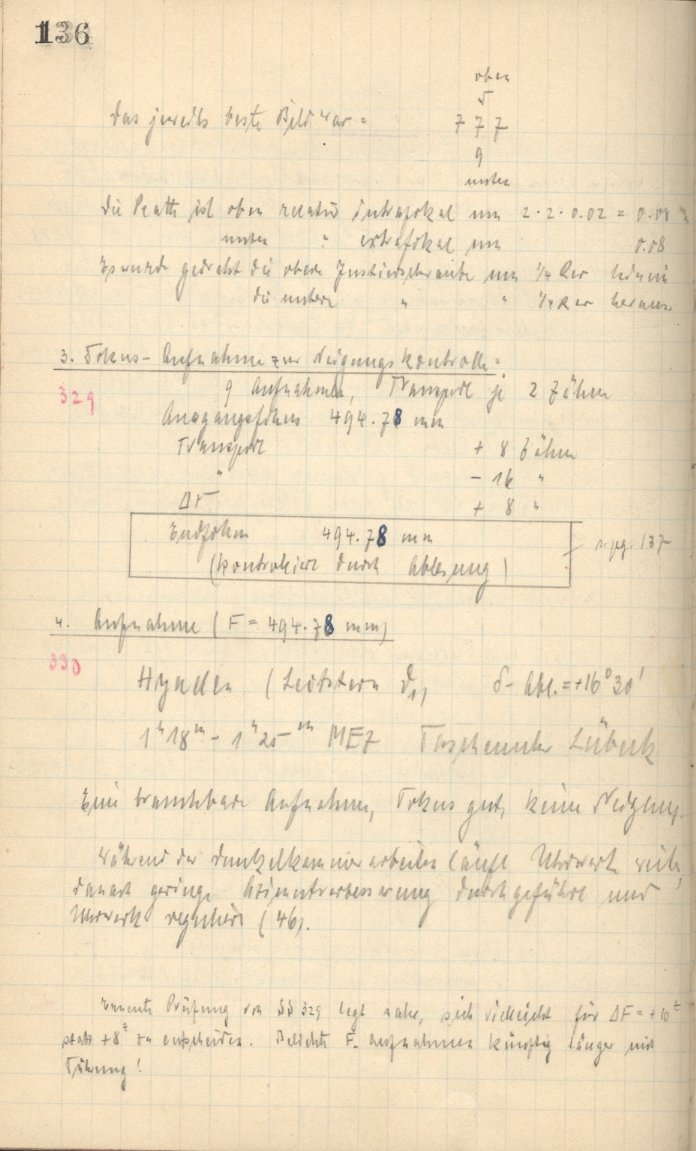 136
oben
5
Das jeweils beste Bild war: 7 7 7
9
unten
Die Platte ist oben relativ intrafokal um 2·2·0.02 = 0.08
unten " extrafokal um 0.08
Es wurde gedreht die obere Justierschraube um 1/4 hinein
die untere " " 1/4 heraus
3. Fokus-Aufnahme zur Neigungskontrolle:
329
9 Aufnahmen, Transport je 2 Zähne
Ausgangsfokus 494.78 mm
Transport + 8 Zähne
" - 16 "
+ 8 "
Endfokus 494.78 mm
(kontrolliert durch Ablesung)
s. pg. 137
4. Aufnahme (F = 494.78 mm)
330
Hyaden (Leitstern δ1, δ-Abl. = +16° 30'
1h 18m - 1h 25m MEZ Taschenuhr Lübeck
Eine brauchbare Aufnahme, Fokus gut, keine Neigung.
Während der Dunkelkammerarbeiten läuft Uhrwerk weiter,
danach geringe Azimutverbesserung durchgeführt und
Uhrwerk reguliert (46).
Erneute Prüfung von 329 legt nahe, sich vielleicht für ΔF = +10z
statt +8z zu entscheiden. Belichte F.-Aufnahmen künftig länger mit
Führung!